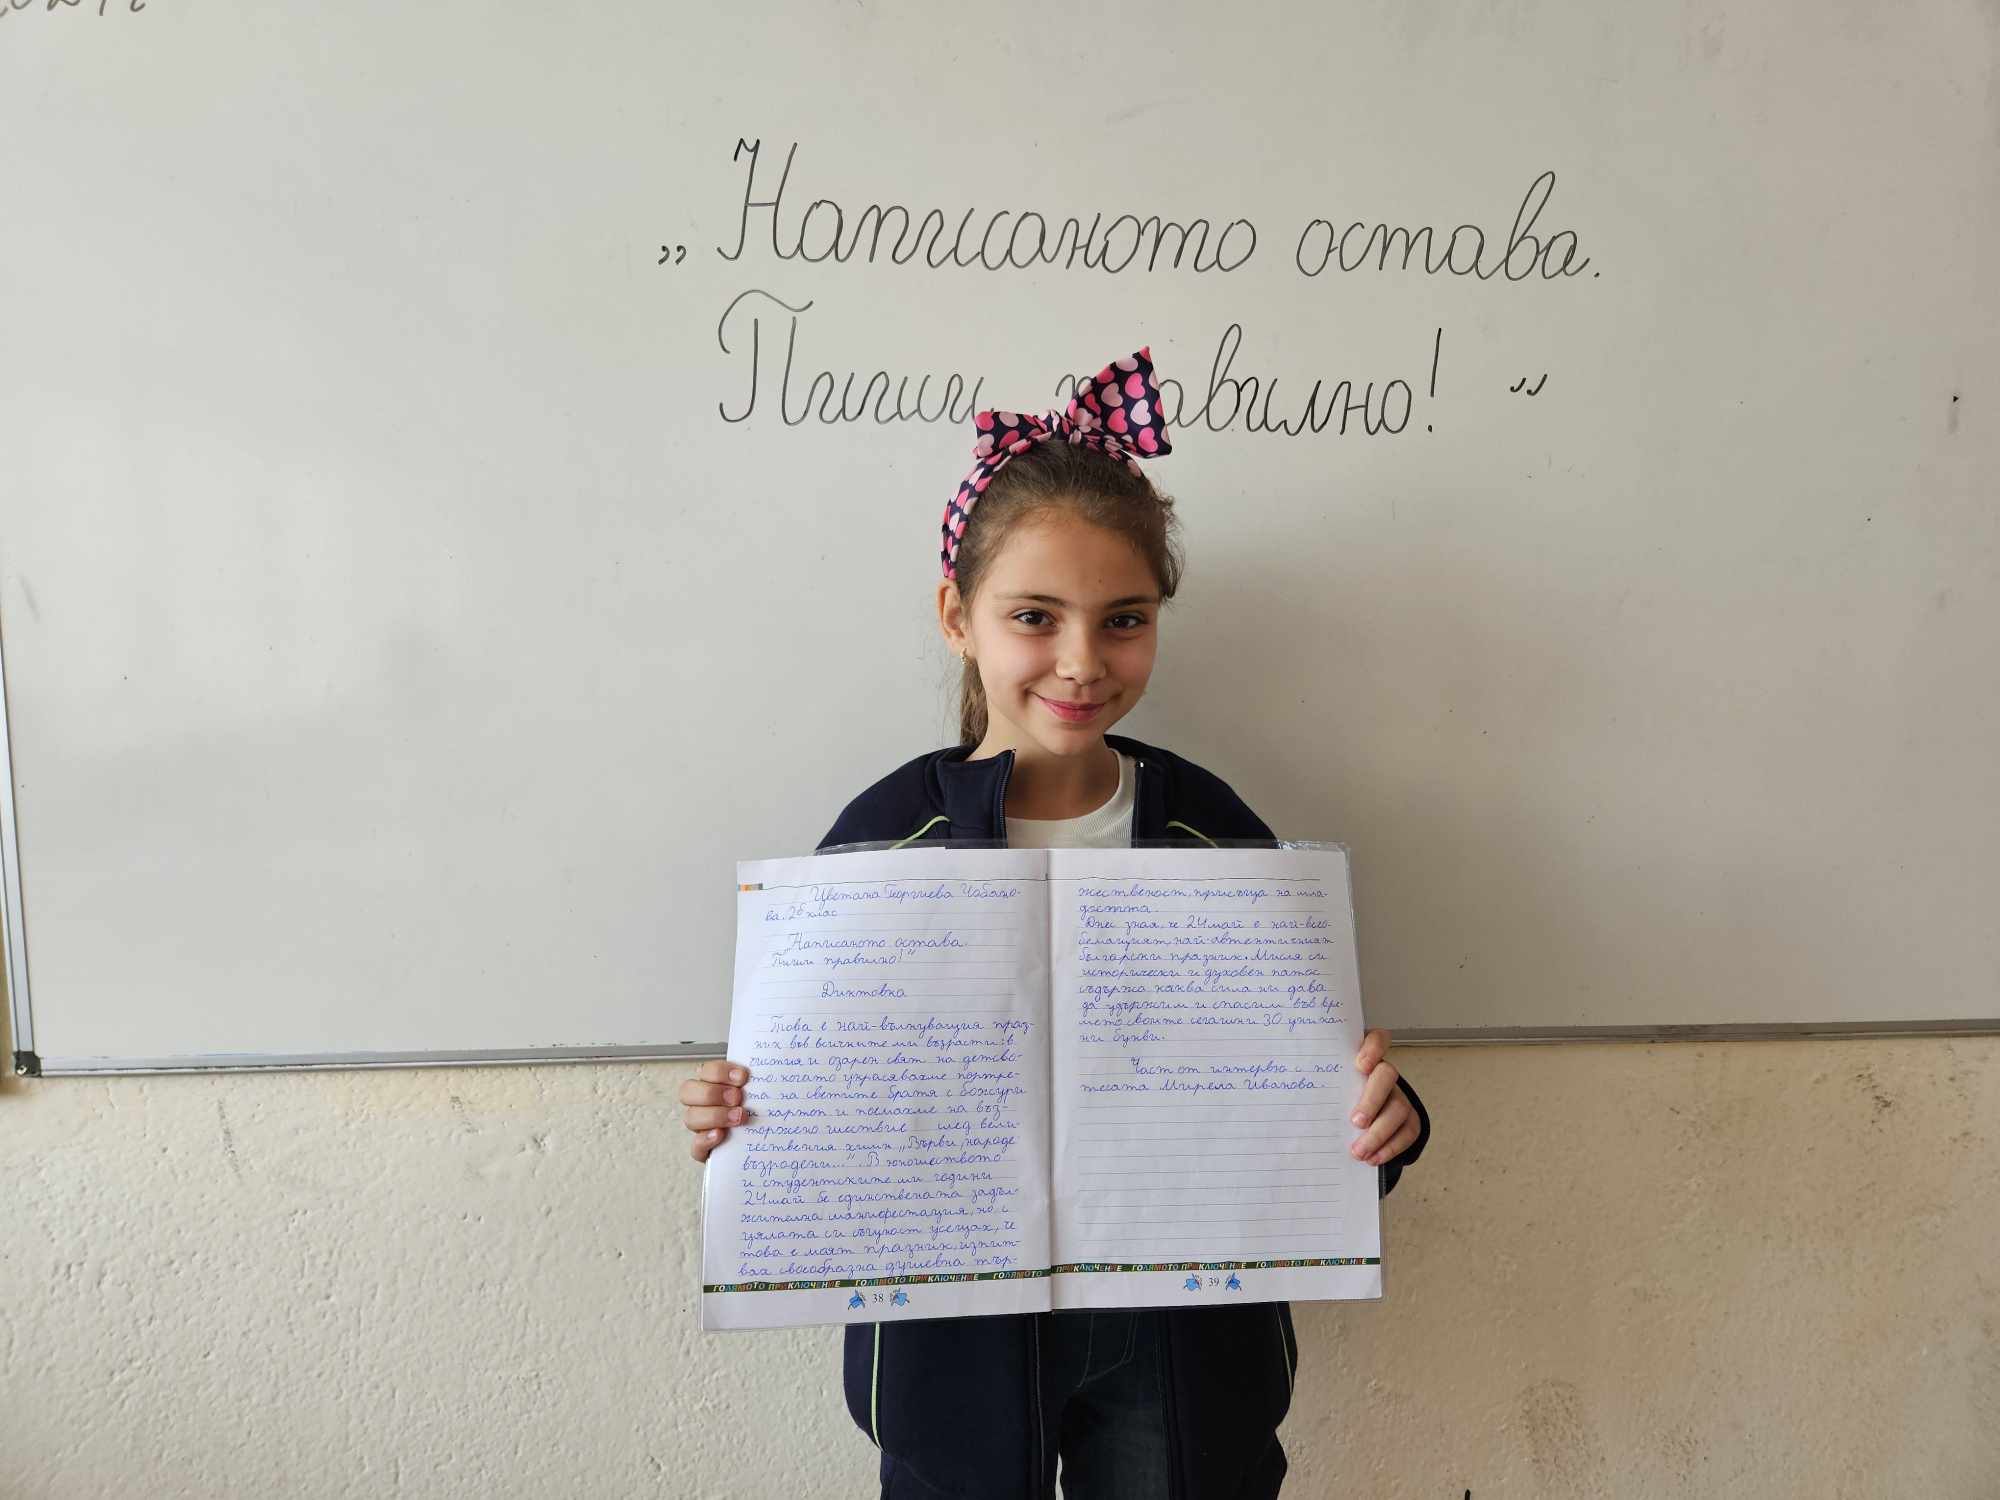 „Написаното остава.
Пиши правилно!“
Цветана Георгиева Чобано-
ва, 2б клас
„Написаното остава.
Пиши правилно!“
Диктовка
Това е най-вълнуващия праз-
ник във всичките ми възрасти: в
чистия и озарен свят на детско-
то, когато украсявахме портре-
та на светите братя с божури
и картон и поемахме на въз-
торжено шествие след вели-
чествения химн „Върви, народе
възродени...“. В юношеството
и студентските ми години
24 май бе единствената задъл-
жителна манифестация, но с
цялата си същност усещах, че
това е моят празник, изпит-
вах своеобразна душевна тър-
жественост, присъща на мла-
достта.
Днес зная, че 24 май е най-всео-
бемащият, най-автентичният
български празник. Мисля си
исторически и духовен патос
съдържа, каква сила ни дава
да удържим и спасим във вре-
мето своите сегашни 30 уникал-
ни букви.
Част от интервю с пое-
тесата Мирела Иванова.
ГОЛЯМОТО ПРИКЛЮЧЕНИЕ ГОЛЯМОТО ПРИКЛЮЧЕНИЕ ГОЛЯМОТО
38
ПРИКЛЮЧЕНИЕ ГОЛЯМОТО ПРИКЛЮЧЕНИЕ ГОЛЯМОТО ПРИКЛЮЧЕНИЕ
39